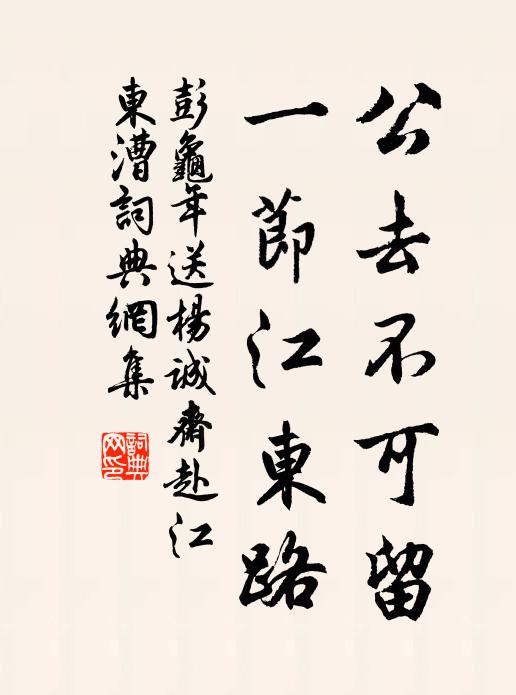 公去不可留
一節江東路
彭龜年送楊誠齋赴江
東漕詞典網集
詞典
网印